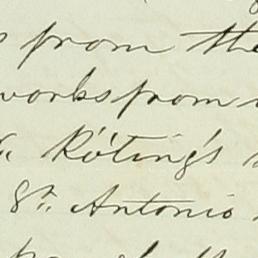 from the
works from
Röting's
St. Antonio